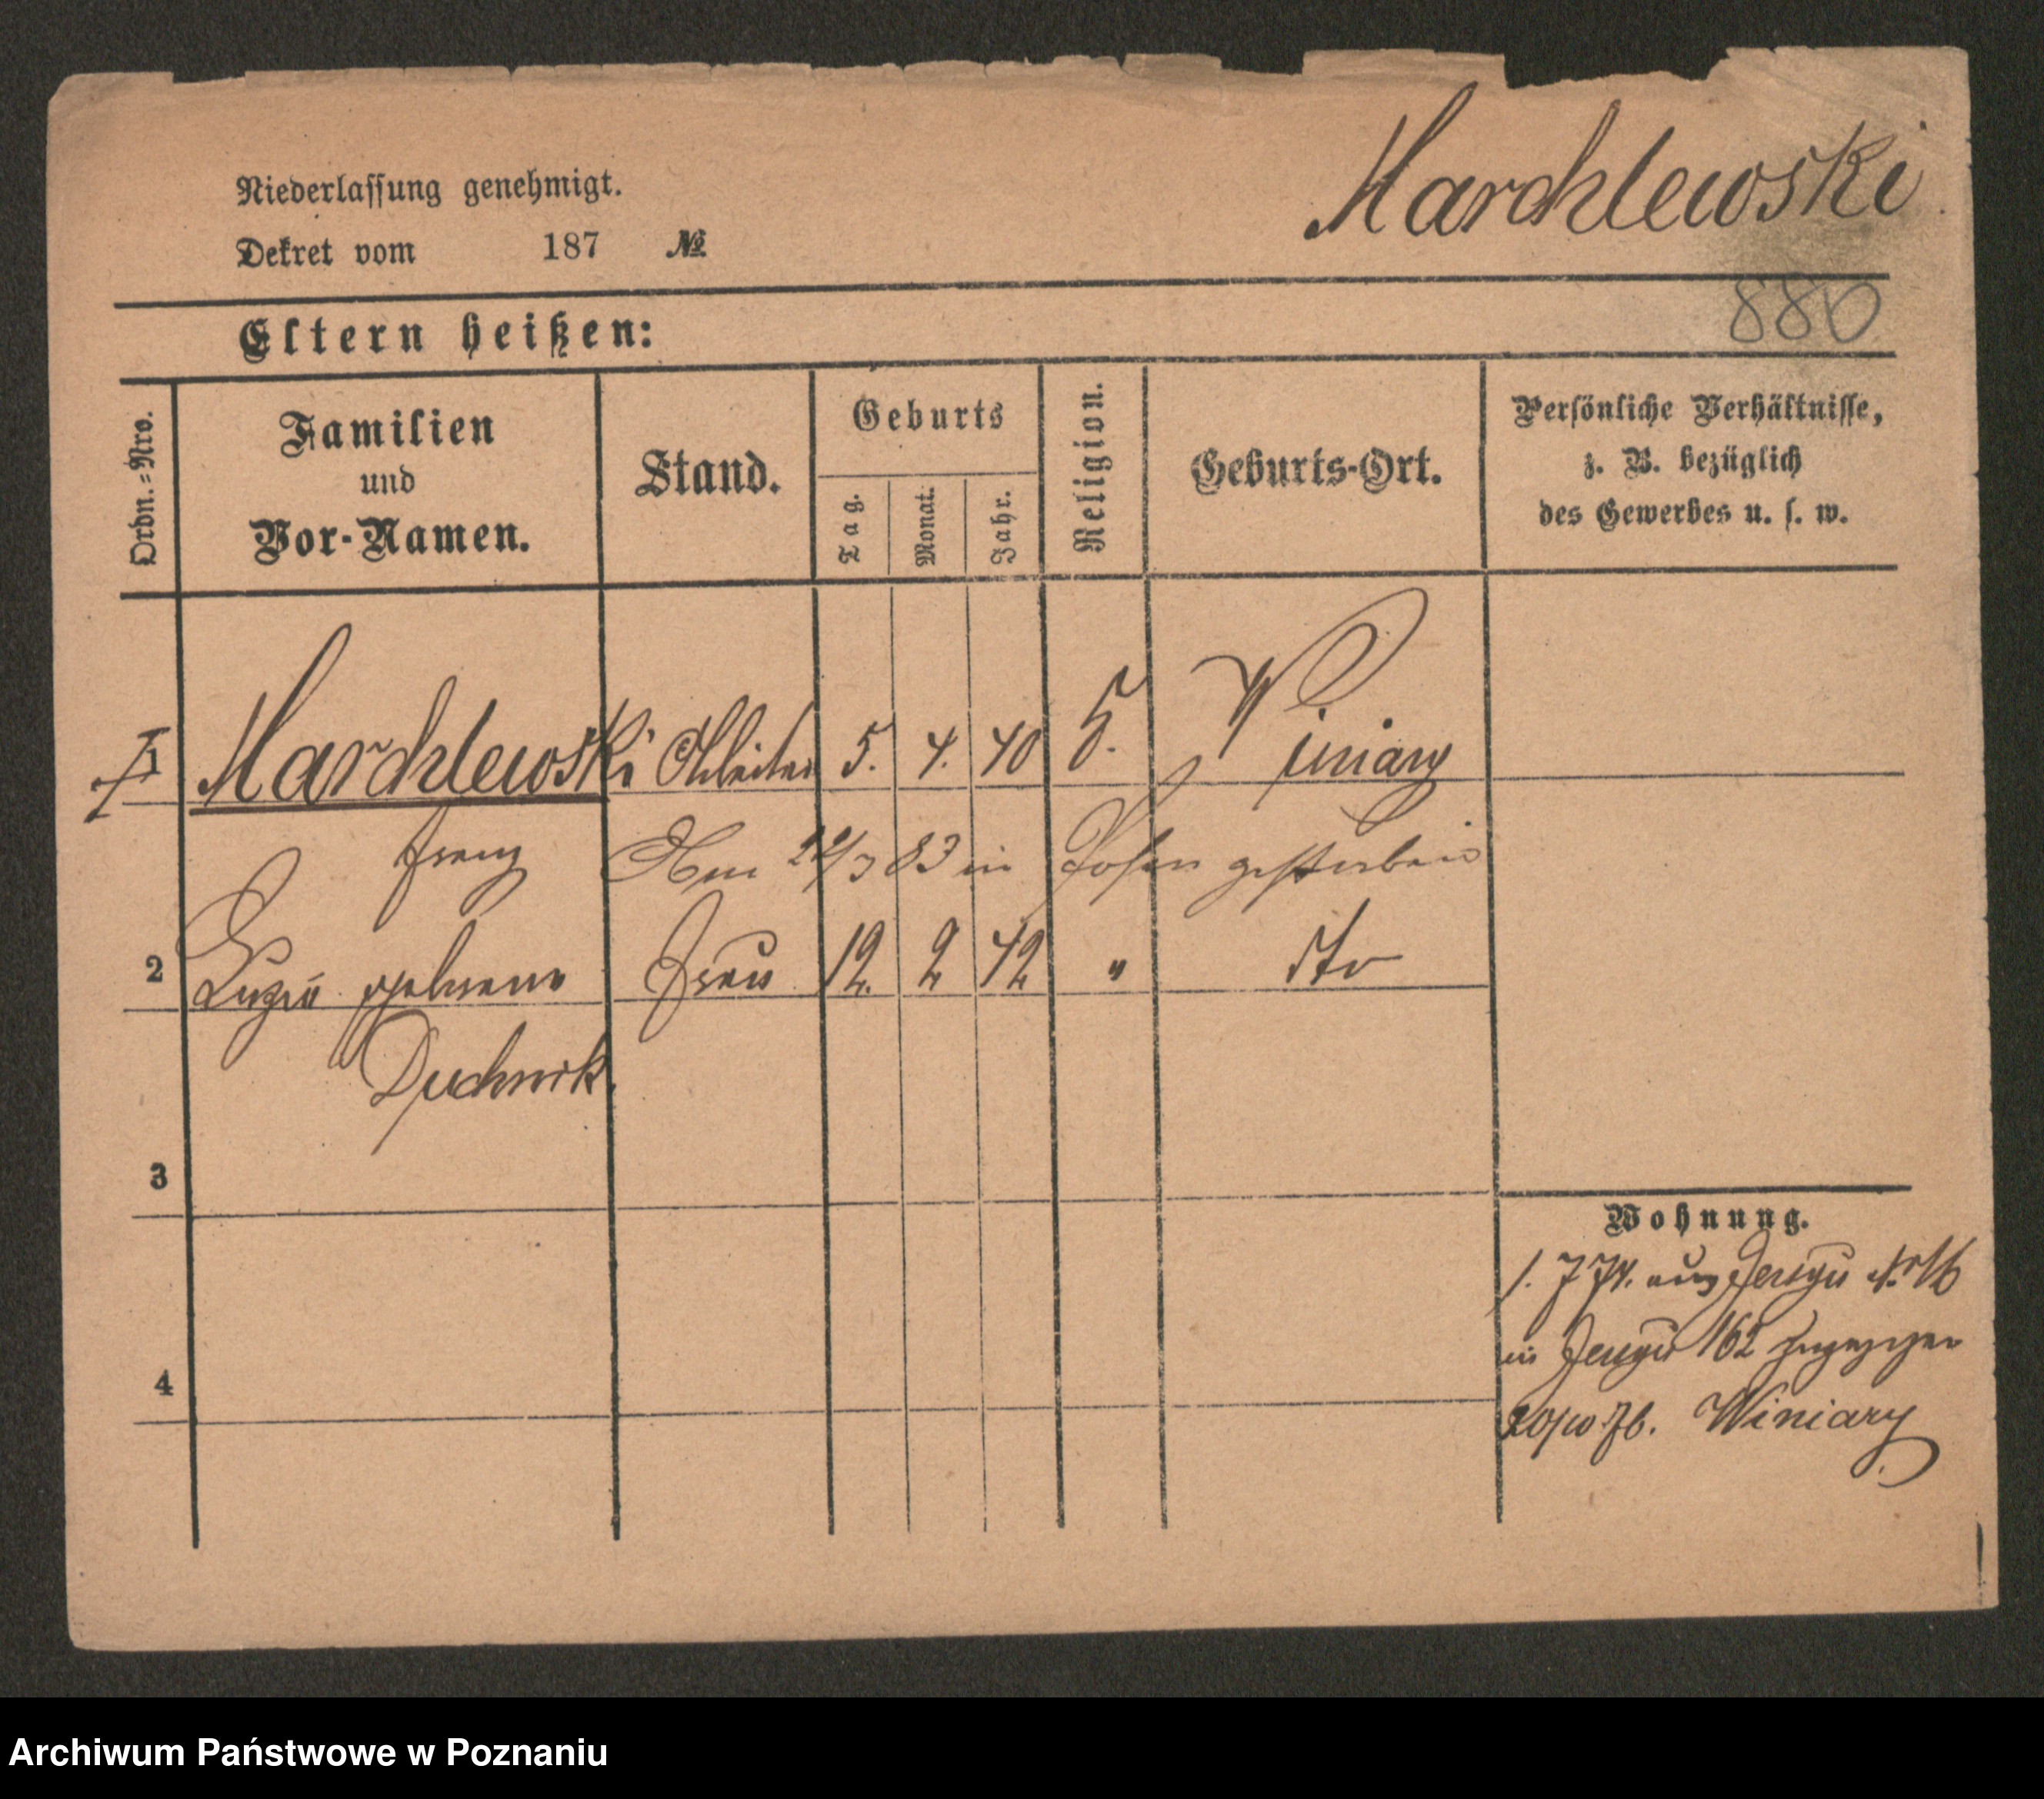 Marchlewski
Niederlassung genehmigt.
Dekret vom 187 №
880
Eltern heißen:
Ordn.-Nro.
Familien
und
Vor-Namen.
Stand.
Geburts
Tag.
Monat.
Jahr.
Religion.
Geburts-Ort.
Persönliche Verhältnisse,
z. B. bezüglich
des Gewerbes u. s. w.
Marchlewski Arbeiter 5. 4. 40 Winiary
Franz Am 22/3 83 in Posen gestorben
2 Frau 12. 2 42 " dto
Duchnik.
3
Wohnung.
1. 7 74. aus Jerzyce № 16
in Jerzyce 162 zugezogen
4
20/10 76. Winiary
Archiwum Państwowe w Poznaniu